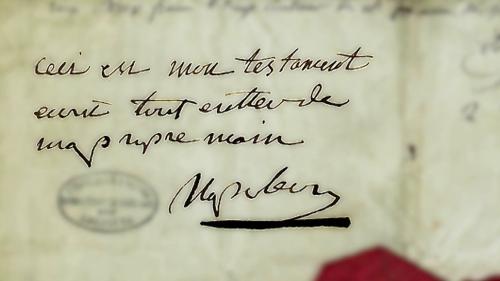 Ceci est mon testament
ecrit tout entier de
ma propre main
Napoleon